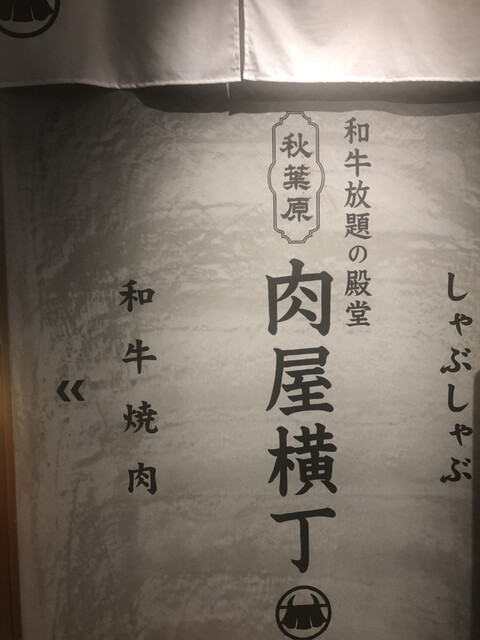 しゃぶしゃぶ
和牛放題の殿堂
秋葉原
肉屋横丁
和牛焼肉
«